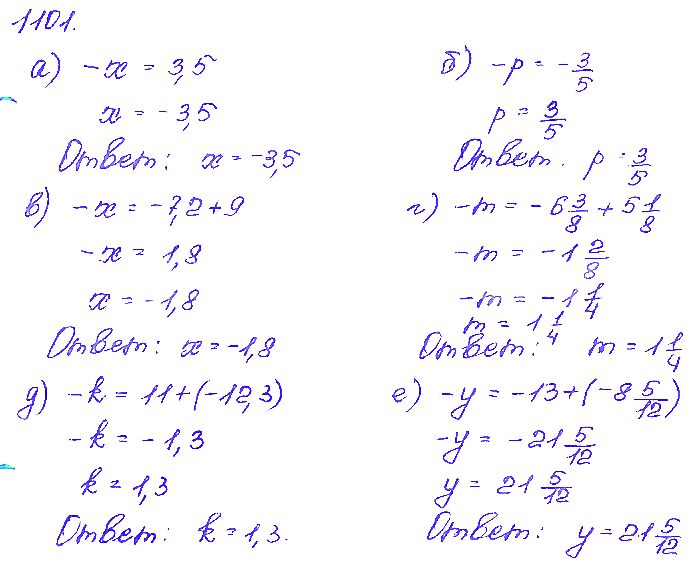 1101.
а) -x = 3,5
x = -3,5
Ответ: x = -3,5
б) -p = -3/5
p = 3/5
Ответ. p = 3/5
в) -x = -7,2+9
-x = 1,8
x = -1,8
Ответ: x = -1,8
г) -m = -6 3/8 + 5 1/8
-m = -1 2/8
-m = -1 1/4
m = 1 1/4
Ответ: m = 1 1/4
д) -k = 11+(-12,3)
-k = -1,3
k = 1,3
Ответ: k = 1,3.
е) -y = -13+(-8 5/12)
-y = -21 5/12
y = 21 5/12
Ответ: y = 21 5/12